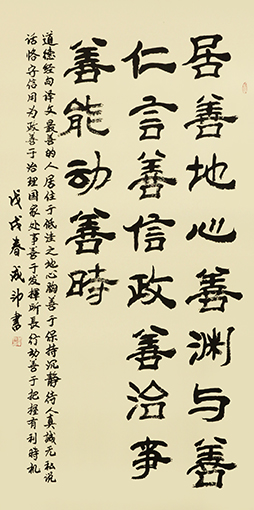 居善地心善渊与善
仁言善信政善治事
善能动善時
道德经句译文最善的人居住于低洼之地心胸善于保持沉静待人真誠无私说
话恪守信用为政善于治理国家处事善于发挥所长行动善于把握有利時机
戊戌春書